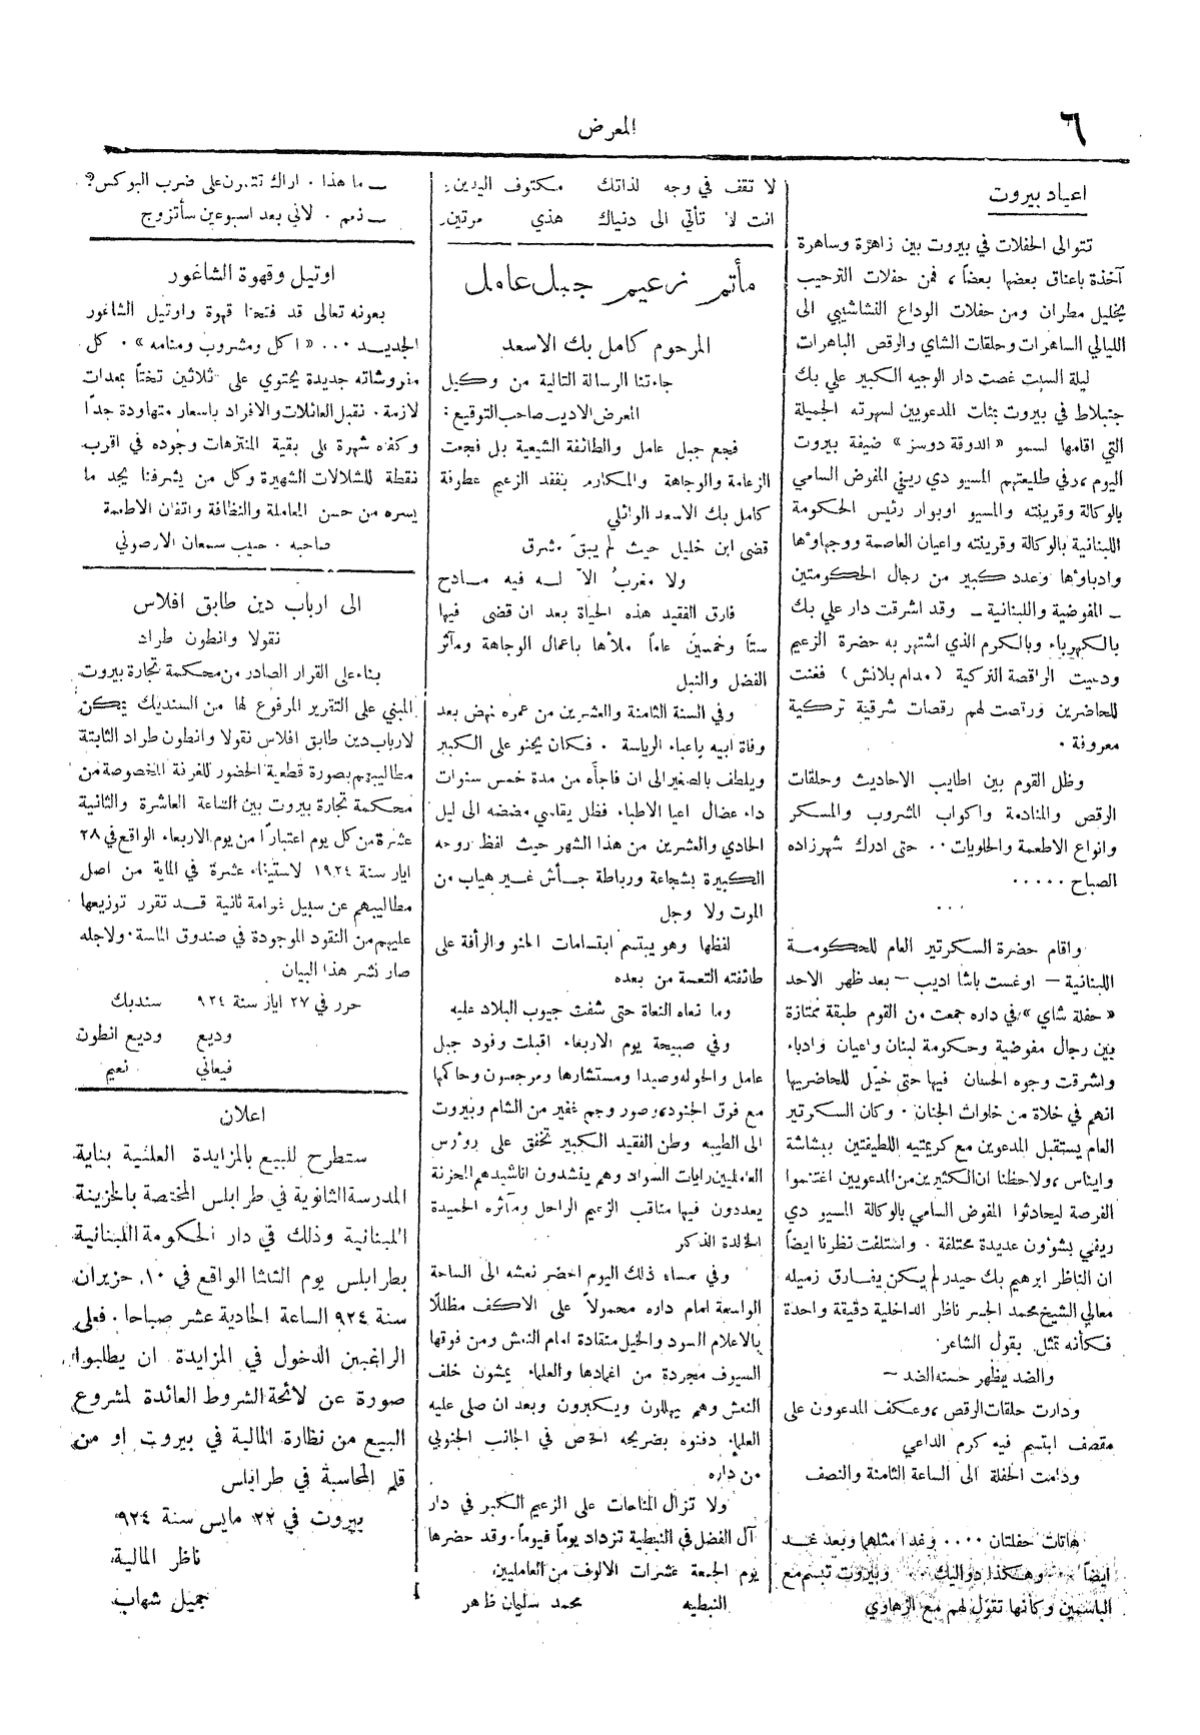 ٦
المعرض
اعياد بيروت
تتوالى الحفلات في بيروت بين زاهرة وساهرة
آخذة باعناق بعضها بعضاً ، فمن حفلات الترحيب
بخليل مطران ومن حفلات الوداع النشاشيبي الى
الليالي الساهرات وحلقات الشاي والرقص الباهرات
ليلة السبت غصت دار الوجيه الكبير علي بك
جنبلاط في بيروت بمئات المدعويين لسهرته الجميلة
التي اقامها لسمو « الدوقة دوسز » ضيفة بيروت
اليوم ، وفي طليعتهم المسيو دي ريفي المفوض السامي
بالوكالة وقرينته والمسيو اوبوار رئيس الحكومة
اللبنانية بالوكالة وقرينته واعيان العاصمة ووجهاؤها
وادباؤها وعدد كبير من رجال الحكومتين
ـ المفوضية واللبنانية ـ وقد اشرقت دار علي بك
بالكهرباء وبالكرم الذي اشتهر به حضرة الزعيم
ودعيت الراقصة التركية ( مدام بلانش ) فغنت
للحاضرين ورقصت لهم رقصات شرقية تركية
معروفة .
وظل القوم بين اطايب الاحاديث وحلقات
الرقص والمنادمة واكواب المشروب والمسكر
وانواع الاطعمة والحلويات .. حتى ادرك شهرزاده
الصباح .....
...
واقام حضرة السكرتير العام للحكومة
اللبنانية – اوغست باشا اديب – بعد ظهر الاحد
« حفلة شاي » في داره جمعت من القوم طبقة ممتازة
بين رجال مفوضية وحكومة لبنان واعيان وادباء
واشرقت وجوه الحسان فيها حتى خيّل للحاضريها
انهم في خلاة من خلوات الجنان . وكان السكرتير
العام يستقبل المدعوين مع كريمتيه اللطيفتين ببشاشة
وايناس ، ولاحظنا ان الكثيرين من المدعويين اغتنموا
الفرصة ليحادثوا المفوض السامي بالوكالة المسيو دي
ريفي بشؤون عديدة مختلفة . واستلفت نظرنا ايضاً
ان الناظر ابرهيم بك حيدر لم يكن يفارق زميله
معالي الشيخ محمد الجسر ناظر الداخلية دقيقة واحدة
فكأنه تمثل بقول الشاعر .
والضد يظهر حسنه الضد –
ودارت حلقات الرقص ، وعكف المدعوون على
مقصف ابتسم فيه كرم الداعي
ودامت الحفلة الى الساعة الثامنة والنصف
هاتات حفلتان .... وغدا مثلها وبعد غد
ايضاً وهكذا دواليك وبيروت تبسم مع
الباسمين وكأنها تقول لهم مع الزهاوي
لا تقف في وجه لذاتك مكتوف اليدين
انت لا تأتي الى دنياك هذي مرتين
مأتم زعيم جبل عامل
المرحوم كامل بك الاسعد
جاءتنا الرسالة التالية من وكيل
المعرض الاديب صاحب التوقيع :
فجع جبل عامل والطائفة الشيعية بل فجعت
الزعامة والوجاهة والمكارم بفقد الزعيم عطوفة
كامل بك الاسعد الوائلي
قضى ابن خليل حيث لم يبقَ مشرق
ولا مغربُ الاّ له فيه مادح
فارق الفقيد هذه الحياة بعد ان قضى فيها
ستاً وخمسين عاماً ملأها باعمال الوجاهة ومآثر
الفضل والنبل
وفي السنة الثامنة والعشرين من عمره نهض بعد
وفاة ابيه باعباء الرياسة . فكان يحنو على الكبير
ويلطف بالصغير الى ان فاجأه من مدة خمس سنوات
داء عضال اعيا الاطباء فظل يقاسي مضضه الى ليل
الحادي والعشرين من هذا الشهر حيث لفظ روحه
الكبيرة بشجاعة ورباطة جأش غير هياب من
الموت ولا وجل
لفظها وهو يبتسم ابتسامات الحنو والرأفة على
طائفته التعسة من بعده
وما نعاه النعاة حتى شقت جيوب البلاد عليه
وفي صبيحة يوم الاربعاء اقبلت وفود جبل
عامل والحوله وصيدا ومستشارها ومرجعيون وحاكمها
مع فرق الجنود ، وصور وجم غفير من الشام وبيروت
الى الطيبه وطن الفقيد الكبير تخفق على رؤوس
العامليين رايات السواد وهم ينشدون اناشيدهم المحزنة
يعددون فيها مناقب الزعيم الراحل ومآثره الحميدة
الخالدة الذكر
وفي مساء ذلك اليوم احضر نعشه الى الساحة
الواسعة امام داره محمولاً على الاكف مظللاً
بالاعلام السود والخيل منقادة امام النعش ومن فوقها
السيوف مجردة من اغمادها والعلماء يمشون خلف
النعش وهم يهللون ويكبرون وبعد ان صلى عليه
العلماء دفنوه بضريحه الخاص في الجانب الجنوبي
من داره
ولا تزال المناحات على الزعيم الكبير في دار
آل الفضل في النبطية تزداد يوماً فيوماً . وقد حضرها
يوم الجمعة عشرات الالوف من العامليين
النبطيه محمد سليمان ظاهر
ــ ما هذا . اراك تتمرن على ضرب البوكس ؟
ــ نعم . لاني بعد اسبوعين سأتزوج
اوتيل وقهوة الشاغور
بعونه تعالى قد فتحنا قهوة واوتيل الشاغور
الجديد ... « اكل ومشروب ومنامه » . كل
مفروشاته جديدة يحتوي على ثلاثين تختاً بمعدات
لازمة . نقبل العائلات والافراد باسعار متهاودة جداً
وكفاه شهرة على بقية المنتزهات وجوده في اقرب
نقطة للشلالات الشهيرة وكل من يشرفنا يجد ما
يسره من حسن المعاملة والنظافة واتقان الاطعمة
صاحبه . حبيب سمعان الارصوني
الى ارباب دين طابق افلاس
نقولا وانطون طراد
بناء على القرار الصادر من محكمة تجارة بيروت
المبني على التقرير المرفوع لها من السنديك يمكن
لارباب دين طابق افلاس نقولا وانطون طراد الثابتة
مطاليبهم بصورة قطعية الحضور للغرفة المخصوصة من
محكمة تجارة بيروت بين الساعة العاشرة والثانية
عشرة من كل يوم اعتباراً من يوم الاربعاء الواقع في ٢٨
ايار سنة ١٩٢٤ لاستيفاء عشرة في الماية من اصل
مطاليبهم عن سبيل غرامة ثانية قد تقرر توزيعها
عليهم من النقود الموجودة في صندوق الماسة . ولاجله
صار نشر هذا البيان
حرر في ٢٧ ايار سنة ٩٢٤ سنديك
وديع وديع انطون
فيعاني نعيم
اعلان
ستطرح للبيع بالمزايدة العلنية بناية
المدرسة الثانوية في طرابلس المختصة بالخزينة
اللبنانية وذلك في دار الحكومة اللبنانية
بطرابلس يوم الثلثا الواقع في ١٠ حزيران
سنة ٩٢٤ الساعة الحادية عشر صباحا . فعلى
الراغبين الدخول في المزايدة ان يطلبوا
صورة عن لائحة الشروط العائدة لمشروع
البيع من نظارة المالية في بيروت او من
قلم المحاسبة في طرابلس
بيروت في ٢٢ مايس سنة ٩٢٤
ناظر المالية
جميل شهاب